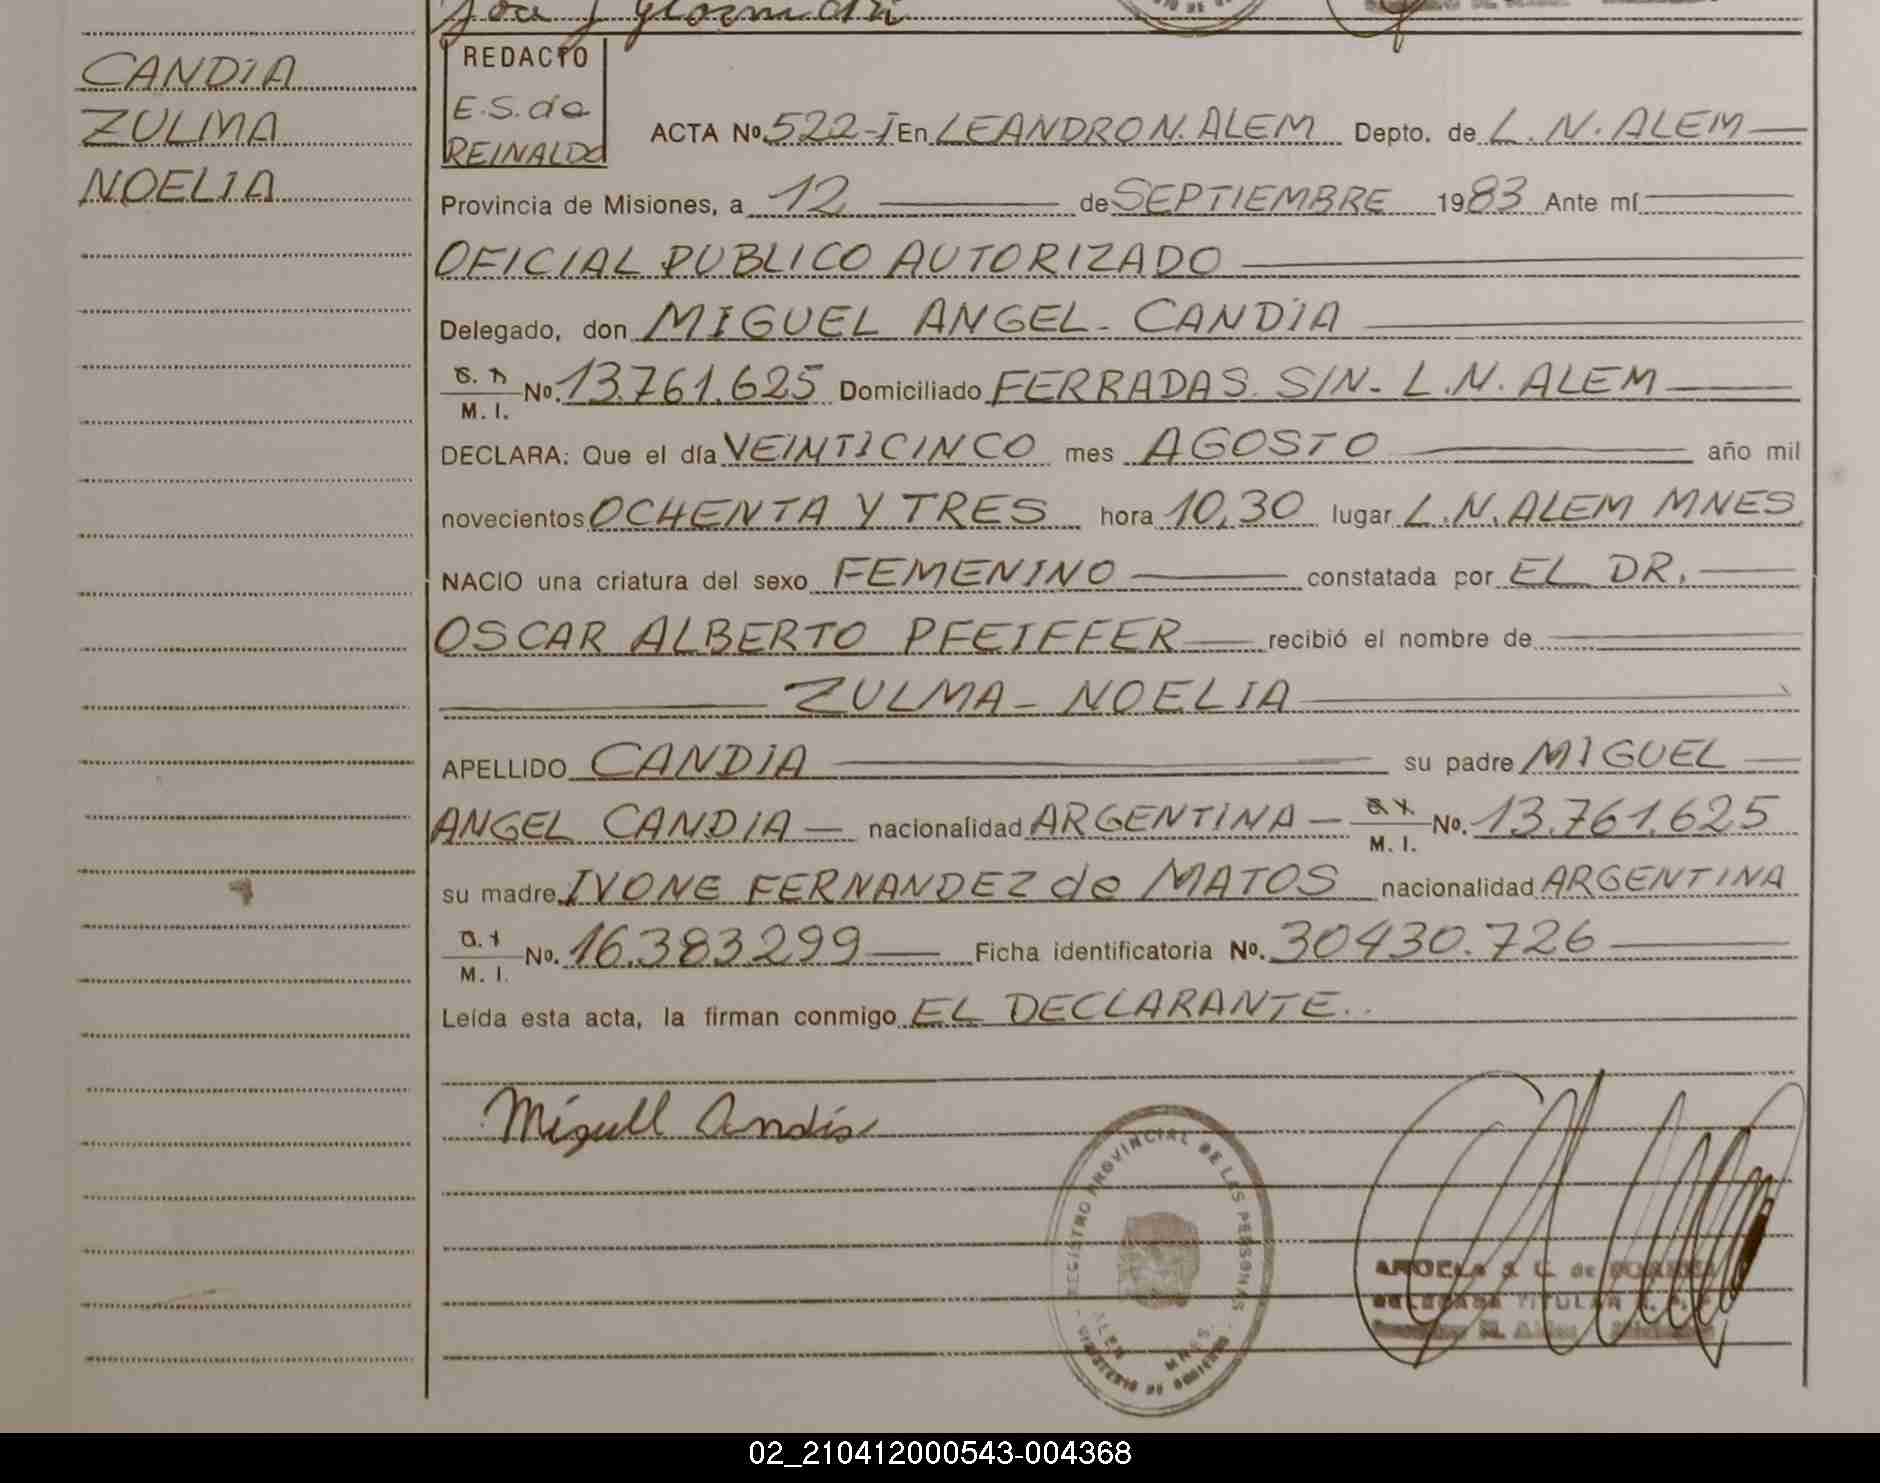 CANDIA
ZULMA
NOELIA
REDACTO
E.S. de
REINALDO
ACTA Nº 522-I En LEANDRO N. ALEM Depto. de L. N. ALEM
Provincia de Misiones, a 12 de SEPTIEMBRE 1983 Ante mí
OFICIAL PUBLICO AUTORIZADO
Delegado, don MIGUEL ANGEL - CANDIA
M. I. Nº 13.761.625 Domiciliado FERRADAS S/N - L.N. ALEM
DECLARA: Que el día VEINTICINCO mes AGOSTO año mil
novecientos OCHENTA Y TRES hora 10,30 lugar L.N. ALEM MNES
NACIO una criatura del sexo FEMENINO constatada por EL DR.
OSCAR ALBERTO PFEIFFER recibió el nombre de
ZULMA - NOELIA
APELLIDO CANDIA su padre MIGUEL
ANGEL CANDIA nacionalidad ARGENTINA M. I. Nº. 13.761.625
su madre IVONE FERNANDEZ de MATOS nacionalidad ARGENTINA
M. I. Nº. 16.383.299 Ficha identificatoria Nº. 30430.726
Leída esta acta, la firman conmigo EL DECLARANTE..
Miguell Candia
REGISTRO PROVINCIAL DE LAS PERSONAS
ALEM MNES.
MINISTERIO DE GOBIERNO
TITULAR
02_210412000543-004368